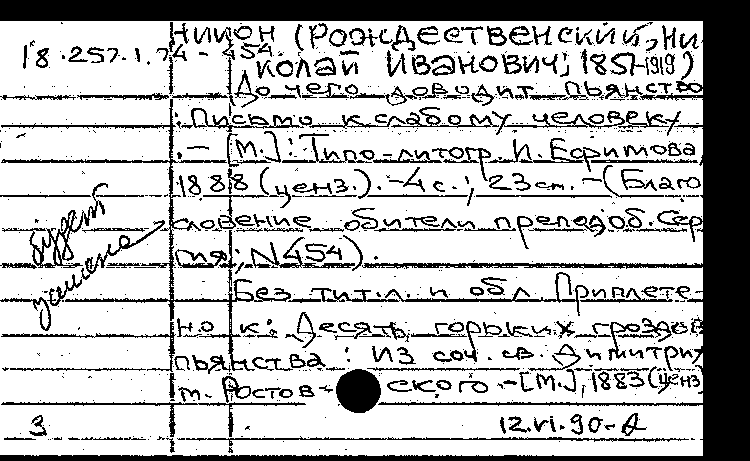 18.257.1.74-454
Никон (Рождественский, Ни-
колай Иванович; 1851-1919)
До чего доводит пьянство
: Письмо к слабому человеку
. - [М.] : Типо-литогр. И. Ефимова,
1888 (ценз.). - 4 с.; 23 см. - (Благо
словение обители преподоб. Сер
гия; N 454).
Без тит. л. и обл. Приплете-
но к: Десять горьких гроздов
пьянства : Из соч. св. Димитрия
м. Ростовского. - [М.], 1883 (ценз)
будет
3
12.VI.90-